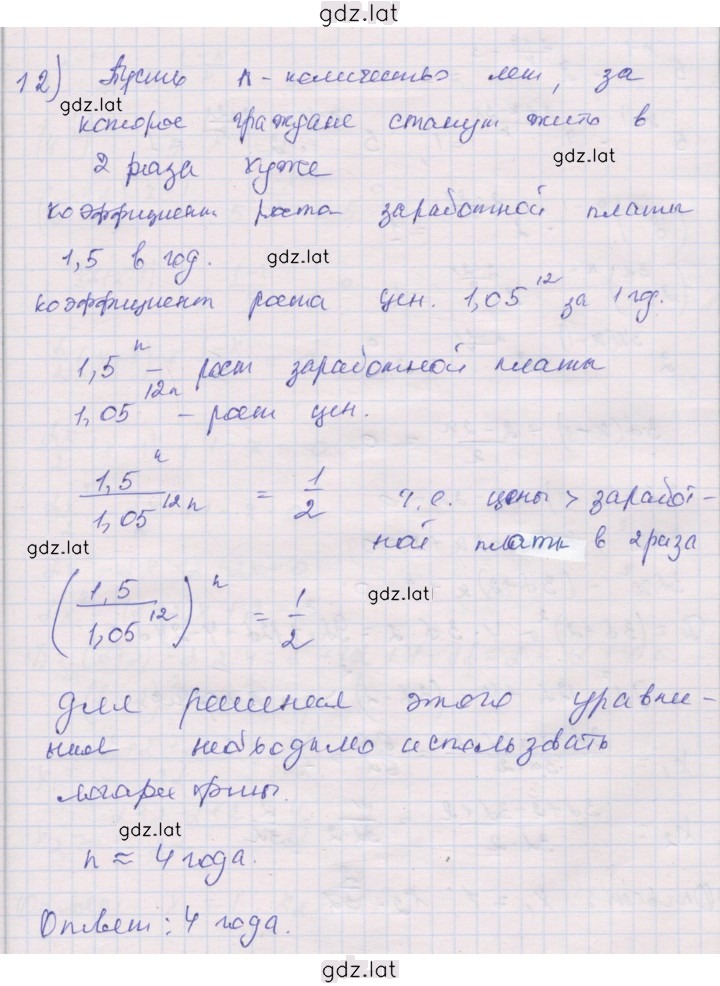 gdz.lat
12) Пусть n - количество лет, за
gdz.lat
которое граждане станут жить в
2 раза хуже
gdz.lat
коэффициент роста заработной платы
1,5 в год.
gdz.lat
коэффициент роста цен. 1,05^12 за 1 год.
1,5^n - рост заработной платы
1,05^12n - рост цен.
1,5^n / 1,05^12n = 1/2 т.е. цены > заработ-
ной платы в 2 раза
gdz.lat
(1,5 / 1,05^12)^n = 1/2
gdz.lat
для решения этого уравне-
ния необходимо использовать
логарифмы.
gdz.lat
n ≈ 4 года.
Ответ: 4 года.
gdz.lat